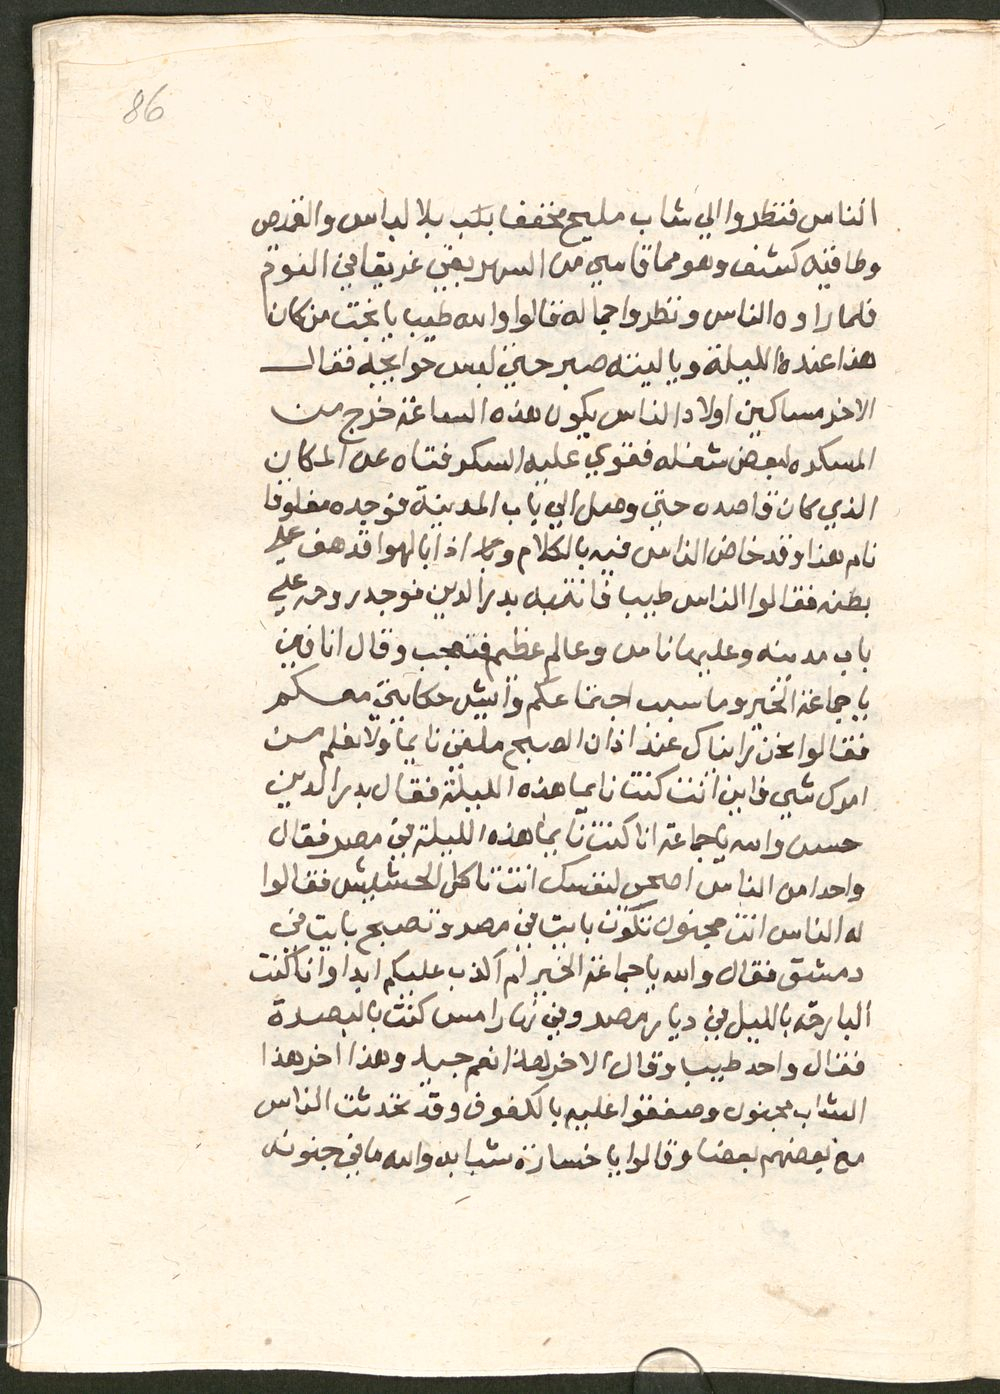 86
الناس فنظروا الي شاب مليح مخففا بلب بلا لباس والقرص
وطاقيه كشف وهو مما قاسي من السهر بقي غريقا في النوم
فلما راوه الناس ونظروا جماله فقالوا والله طيب يا بخت من كان
هذا عنده الليلة ويا ليته صبر حتي لبس حوايجه فقال
الاخر مساكين اولاد الناس يكون هذه الساعة خرج من
المسكره لبعض شغله فقوي عليه السكر فتاه عن المكان
الذي كان قاصده حتي وصل الي باب المدينة فوجده مغلوقا
نام هذا وقد خاض الناس فيه بالكلام واذا بالهوا قد هف علي
بطنه فقالوا الناس طيب فانتبه بدر الدين فوجد روحه علي
باب مدينه وعليها ناس وعالم عظيم فتعجب وقال انا فين
يا جماعة الخير وما سبب اجتماعكم وايش حكايتي معكم
فقالوا نحن رايناك عند اذان الصبح ملقي نايما ولا نعلم من
امرك شي فاين انت كنت نايما هذه الليلة فقال بدر الدين
حسن والله يا جماعة انا كنت نايما هذه الليلة في مصر فقال
واحدا من الناس اصحي لنفسك انت تاكل الحشيش فقالوا
له الناس انت مجنون تكون بايت في مصر وتصبح بايت في
دمشق فقال والله يا جماعة الخير لم اكذب عليكم ابدا وانا كنت
البارحه بالليل في ديار مصر وفي نهار امس كنت بالبصرة
فقال واحد طيب وقال الاخر لهذا نعم جيد وهذا اخر هذا
الشاب مجنون وصفقوا عليه بالكفوف وقد تحدثت الناس
مع بعضهم بعضا وقالوا يا خسارة شبابه والله ما في جنونه